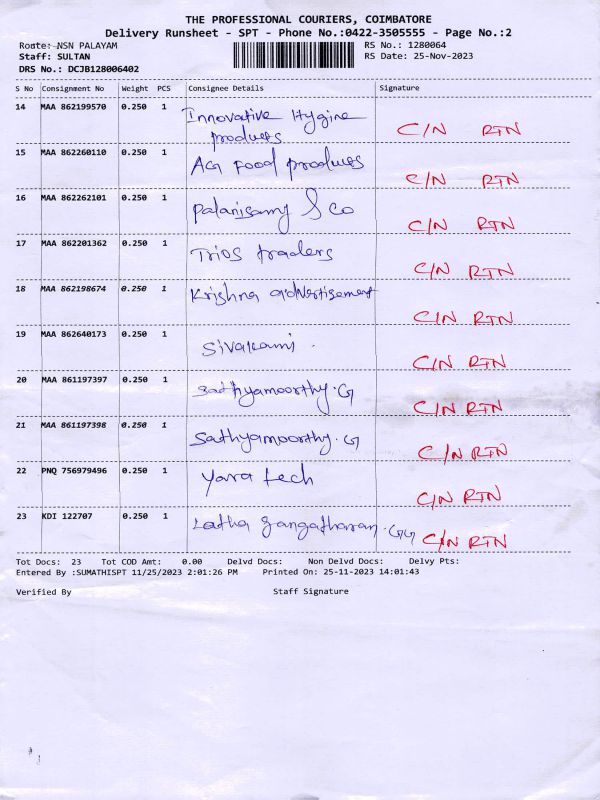 THE PROFESSIONAL COURIERS, COIMBATORE
Delivery Runsheet - SPT - Phone No.:0422-3505555 - Page No.:2
Route: NSN PALAYAM RS No.: 1280064
Staff: SULTAN RS Date: 25-Nov-2023
DRS No.: DCJB128006402
S No Consignment No Weight PCS Consignee Details Signature
14 MAA 862199570 0.250 1 Innovative Hygine
products C/N RTN
15 MAA 862260110 0.250 1 AG Food produces C/N RTN
16 MAA 862262101 0.250 1 Palanisamy & Co C/N RTN
17 MAA 862201362 0.250 1 Trios traders C/N RTN
18 MAA 862198674 0.250 1 Krishna advertisement C/N RTN
19 MAA 862640173 0.250 1 Sivakami . C/N RTN
20 MAA 861197397 0.250 1 Sathyamoorthy.G C/N RTN
21 MAA 861197398 0.250 1 Sathyamoorthy.G C/N RTN
22 PNQ 756979496 0.250 1 Yara tech C/N RTN
23 KDI 122707 0.250 1 Latha gangatharan .GG C/N RTN
Tot Docs: 23 Tot COD Amt: 0.00 Delvd Docs: Non Delvd Docs: Delvy Pts:
Entered By :SUMATHISPT 11/25/2023 2:01:26 PM Printed On: 25-11-2023 14:01:43
Verified By Staff Signature